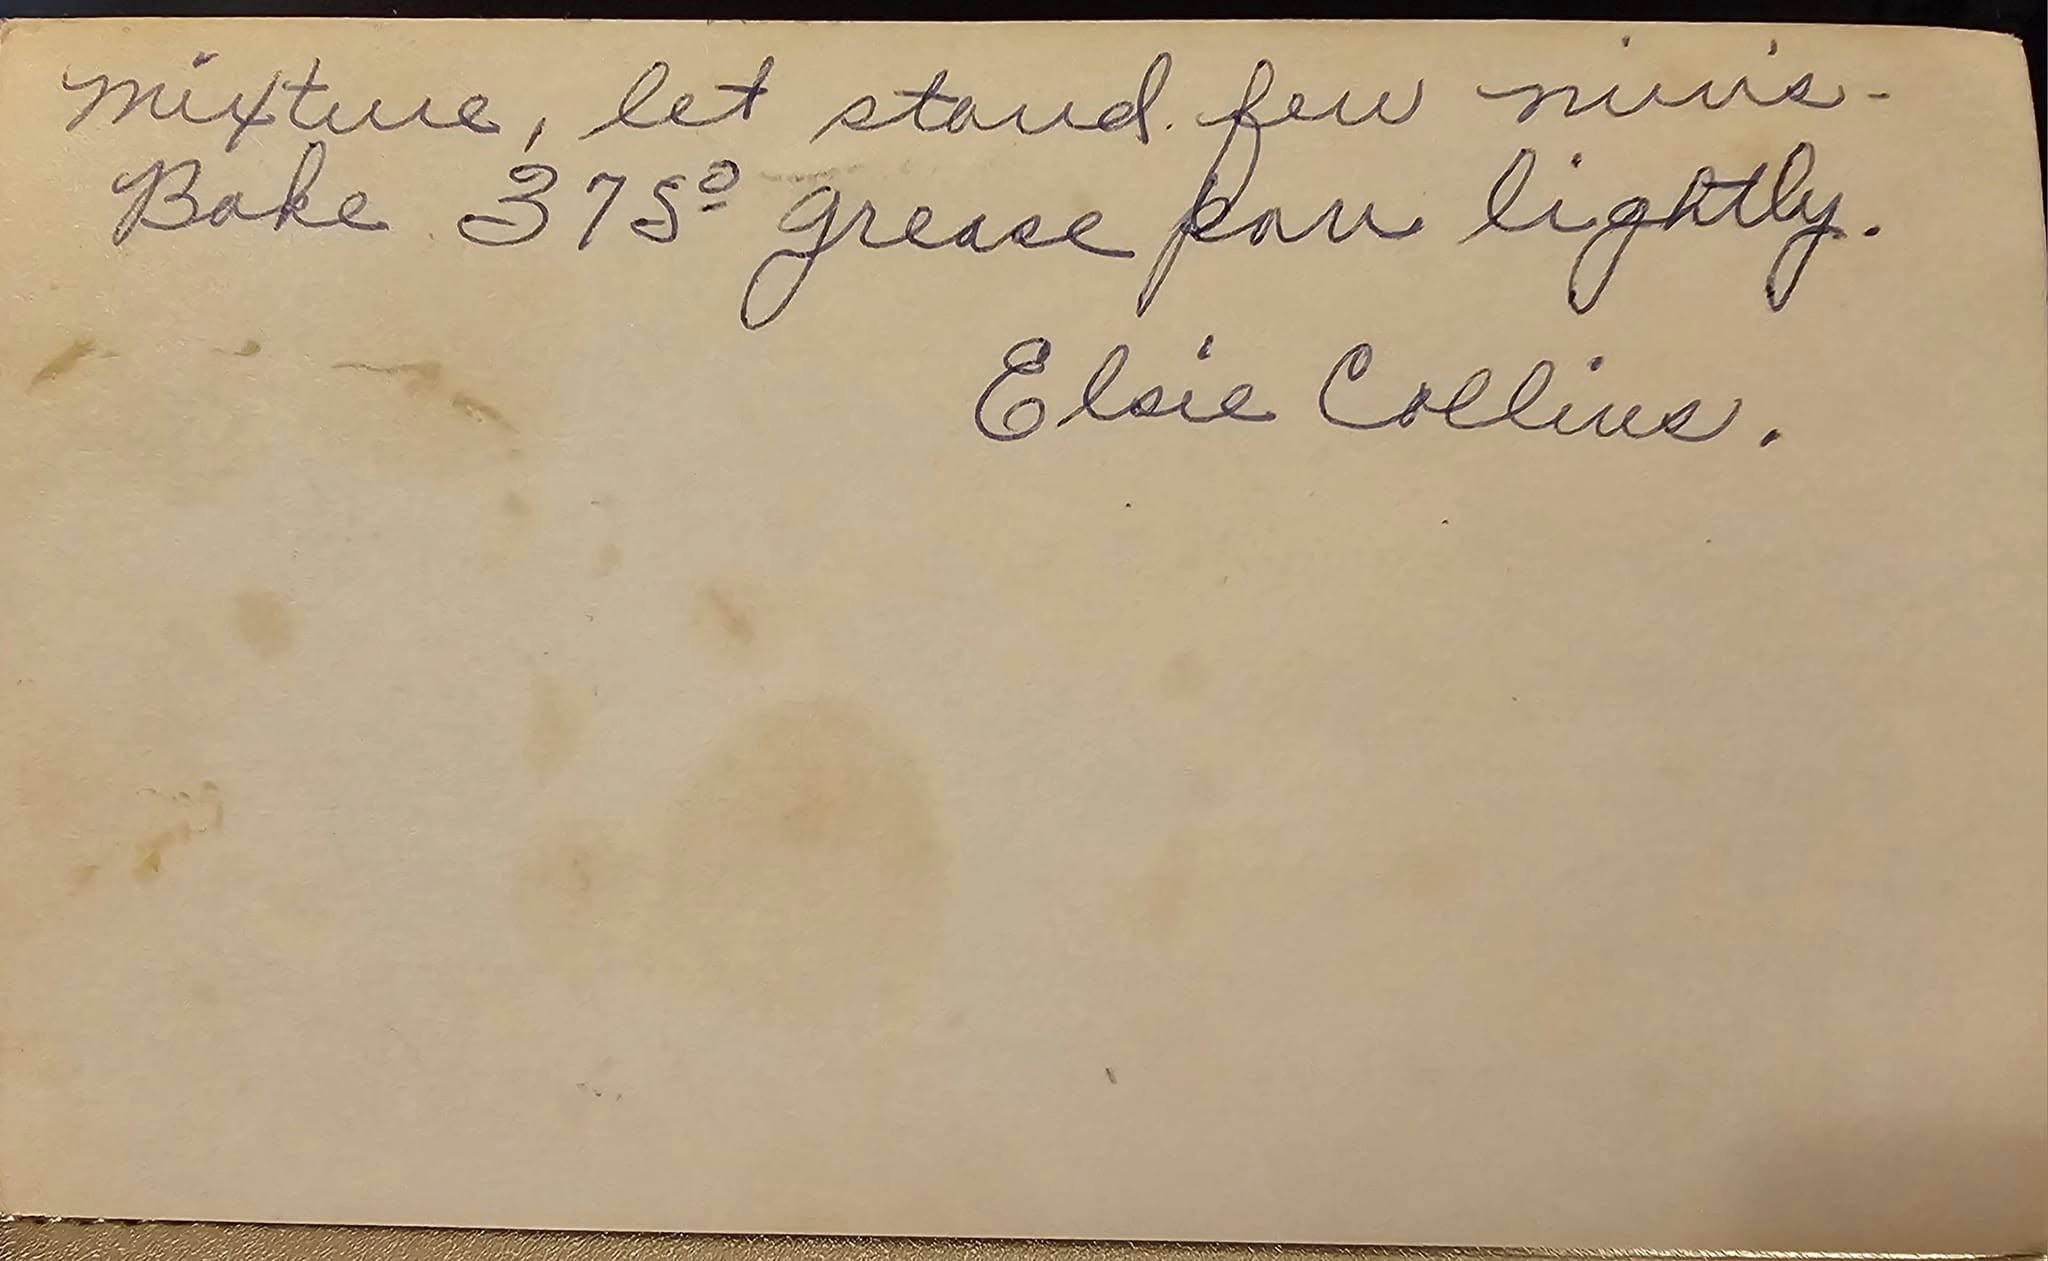 mixture, let stand few min's -
Bake 375º grease pan lightly.
Elsie Collins.